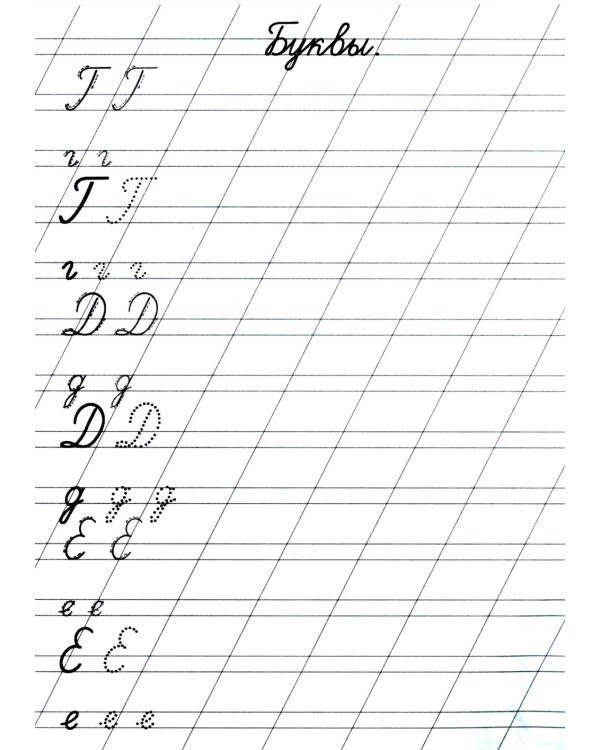 Буквы.
Г Г
г г
Г Г
г г г
Д Д
д д
Д Д
д д д
Е Е
е е
Е Е
е е е